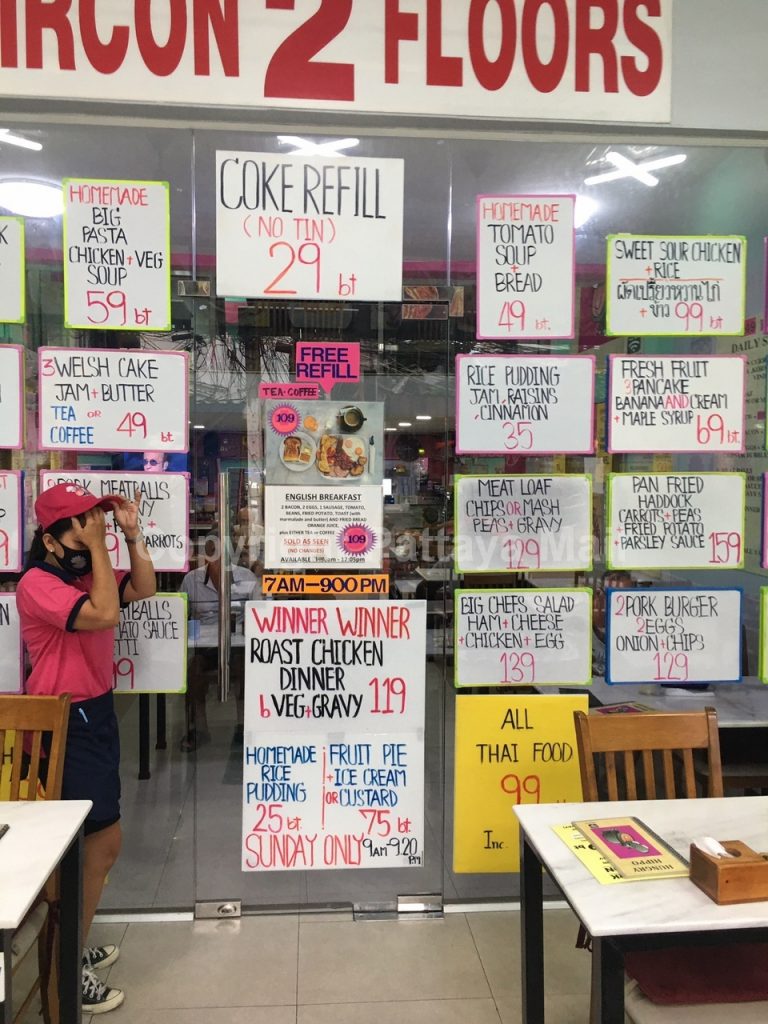 IRCON 2 FLOORS
COKE REFILL
(NO TIN)
29 bt
HOMEMADE
BIG
PASTA
CHICKEN+VEG
SOUP
59 bt
HOMEMADE
TOMATO
SOUP
+
BREAD
49 bt.
SWEET SOUR CHICKEN
+RICE
ผัดเปรี้ยวหวานไก่
+ข้าว 99 bt
3 WELSH CAKE
JAM+BUTTER
TEA OR
COFFEE 49 bt
FREE
REFILL
TEA·COFFEE
109
ENGLISH BREAKFAST
2 BACON, 2 EGGS, 1 SAUSAGE, TOMATO,
BEANS, FRIED POTATO, TOAST (with
marmalade and butter) AND FRIED BREAD
ORANGE JUICE,
plus EITHER TEA or COFFEE
SOLD AS SEEN
(NO CHANGES)
109
7AM-900 PM
RICE PUDDING
JAM, RAISINS
CINNAMON
35
FRESH FRUIT
3 PANCAKE
BANANA AND CREAM
+ MAPLE SYRUP 69 bt.
PORK MEATBALLS
MEAT LOAF
CHIPS OR MASH
PEAS+GRAVY
129
PAN FRIED
HADDOCK
CARROTS+PEAS
+FRIED POTATO
PARSLEY SAUCE 159
WINNER WINNER
ROAST CHICKEN
DINNER
6 VEG+GRAVY 119
BIG CHEFS SALAD
HAM+CHEESE
+CHICKEN+EGG
139
2 PORK BURGER
2 EGGS
ONION+CHIPS
129
HOMEMADE
RICE
PUDDING
25 bt.
FRUIT PIE
+ICE CREAM
OR CUSTARD
75 bt.
SUNDAY ONLY 9AM-9.20 PM
ALL
THAI FOOD
99
Inc.
HUNGRY
HIPPO